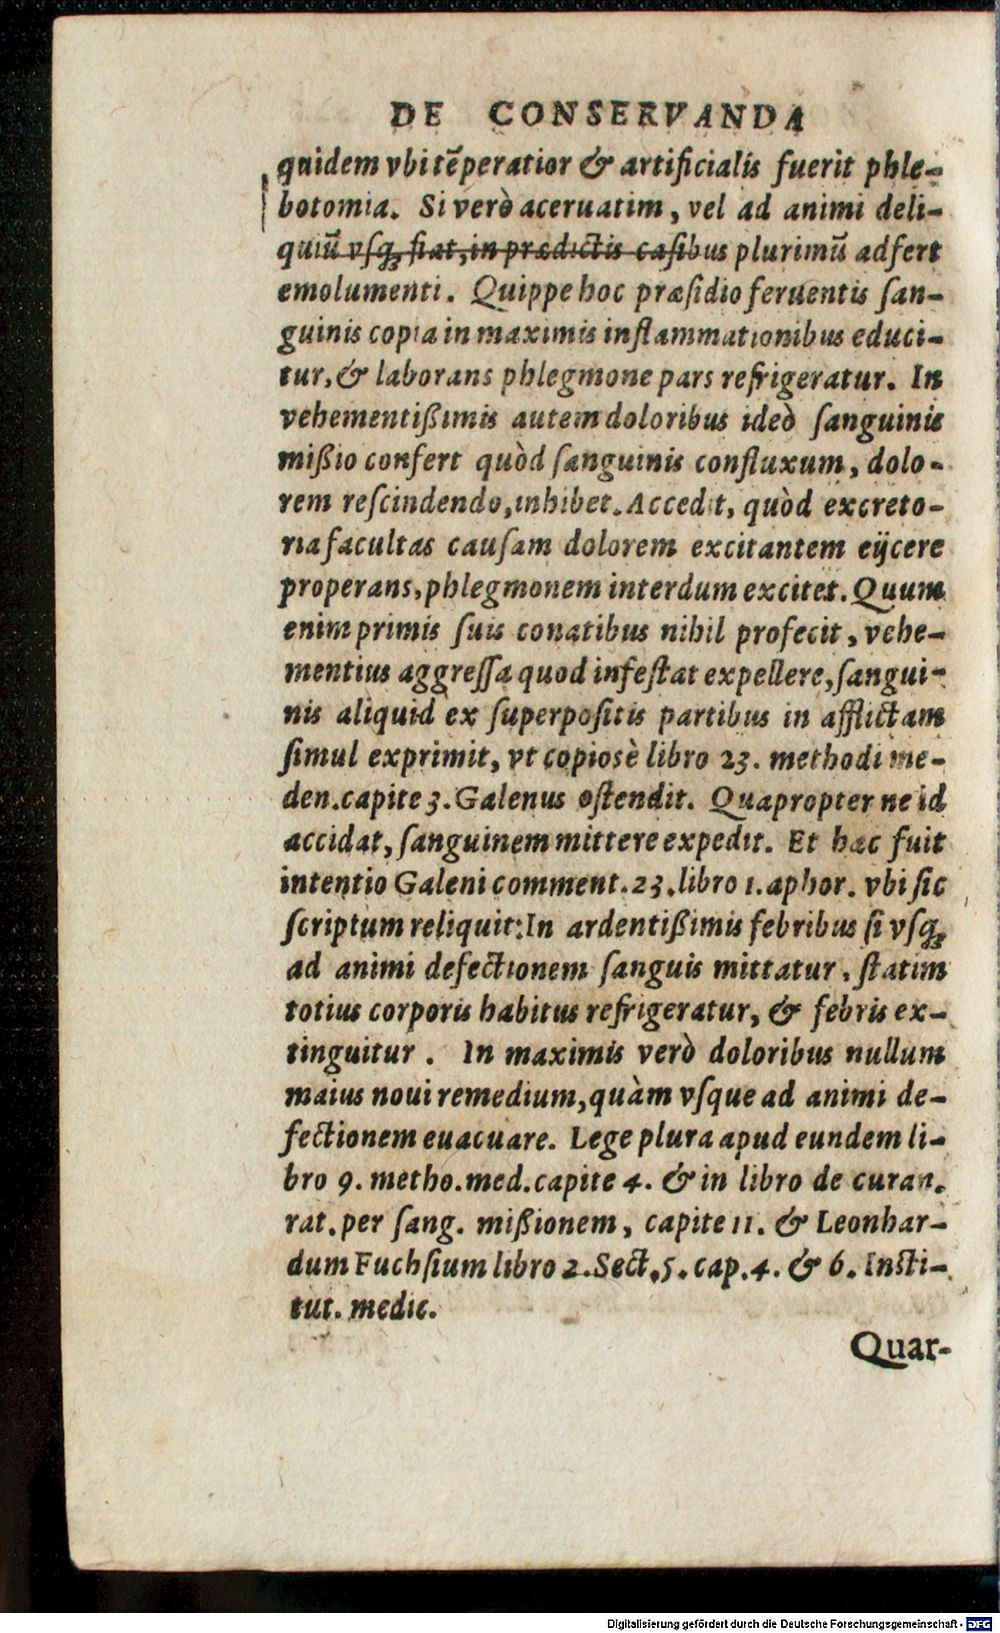 DE CONSERVANDA
quidem vbi tēperatior & artificialis fuerit phle-
botomia. Si verò aceruatim, vel ad animi deli-
quiū vsq; fiat, in prædictis casibus plurimū adfert
emolumenti. Quippe hoc præsidio feruentis san-
guinis copia in maximis inflammationibus educi-
tur, & laborans phlegmone pars refrigeratur. In
vehementißimis autem doloribus ideò sanguinis
mißio confert quòd sanguinis confluxum, dolo-
rem rescindendo, inhibet. Accedit, quòd excreto-
ria facultas causam dolorem excitantem eijcere
properans, phlegmonem interdum excitet. Quum
enim primis suis conatibus nihil profecit, vehe-
mentius aggressa quod infestat expellere, sangui-
nis aliquid ex superpositis partibus in afflictam
simul exprimit, vt copiosè libro 23. methodi me-
den. capite 3. Galenus ostendit. Quapropter ne id
accidat, sanguinem mittere expedit. Et hæc fuit
intentio Galeni comment. 23. libro 1. aphor. vbi sic
scriptum reliquit: In ardentißimis febribus si vsq;
ad animi defectionem sanguis mittatur, statim
totius corporis habitus refrigeratur, & febris ex-
tinguitur. In maximis verò doloribus nullum
maius noui remedium, quàm vsque ad animi de-
fectionem euacuare. Lege plura apud eundem li-
bro 9. metho. med. capite 4. & in libro de curan.
rat. per sang. mißionem, capite 11. & Leonhar-
dum Fuchsium libro 2. Sect. 5. cap. 4. & 6. Insti-
tut. medic.
Quar-
Digitalisierung gefördert durch die Deutsche Forschungsgemeinschaft - DFG